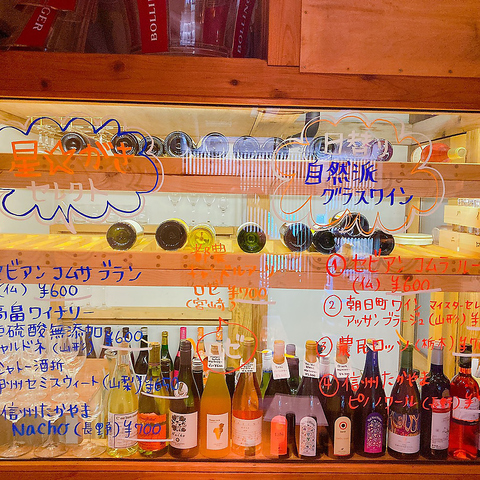 BOLLINGER
BOLLIN
星めがき
セレクト
セビアン コムサ ブラン
(仏) ¥600
高畠ワイナリー
亜硫酸無添加 ¥600
シャルドネ (山形)
シャトー酒折
甲州セミスウィート (山梨)
信州たかやま
Nacho (長野) ¥700
ロゼ ¥700
(宮崎)
日替り
自然派
グラスワイン
① セビアン コムサ ルー
(仏) ¥600
② 朝日町ワイン マイスターセレ
アッサンブラージュ (山形) ¥
③ 農民ロッソ (栃木) ¥7
④ 信州たかやま
ピノノワール (長野) ¥